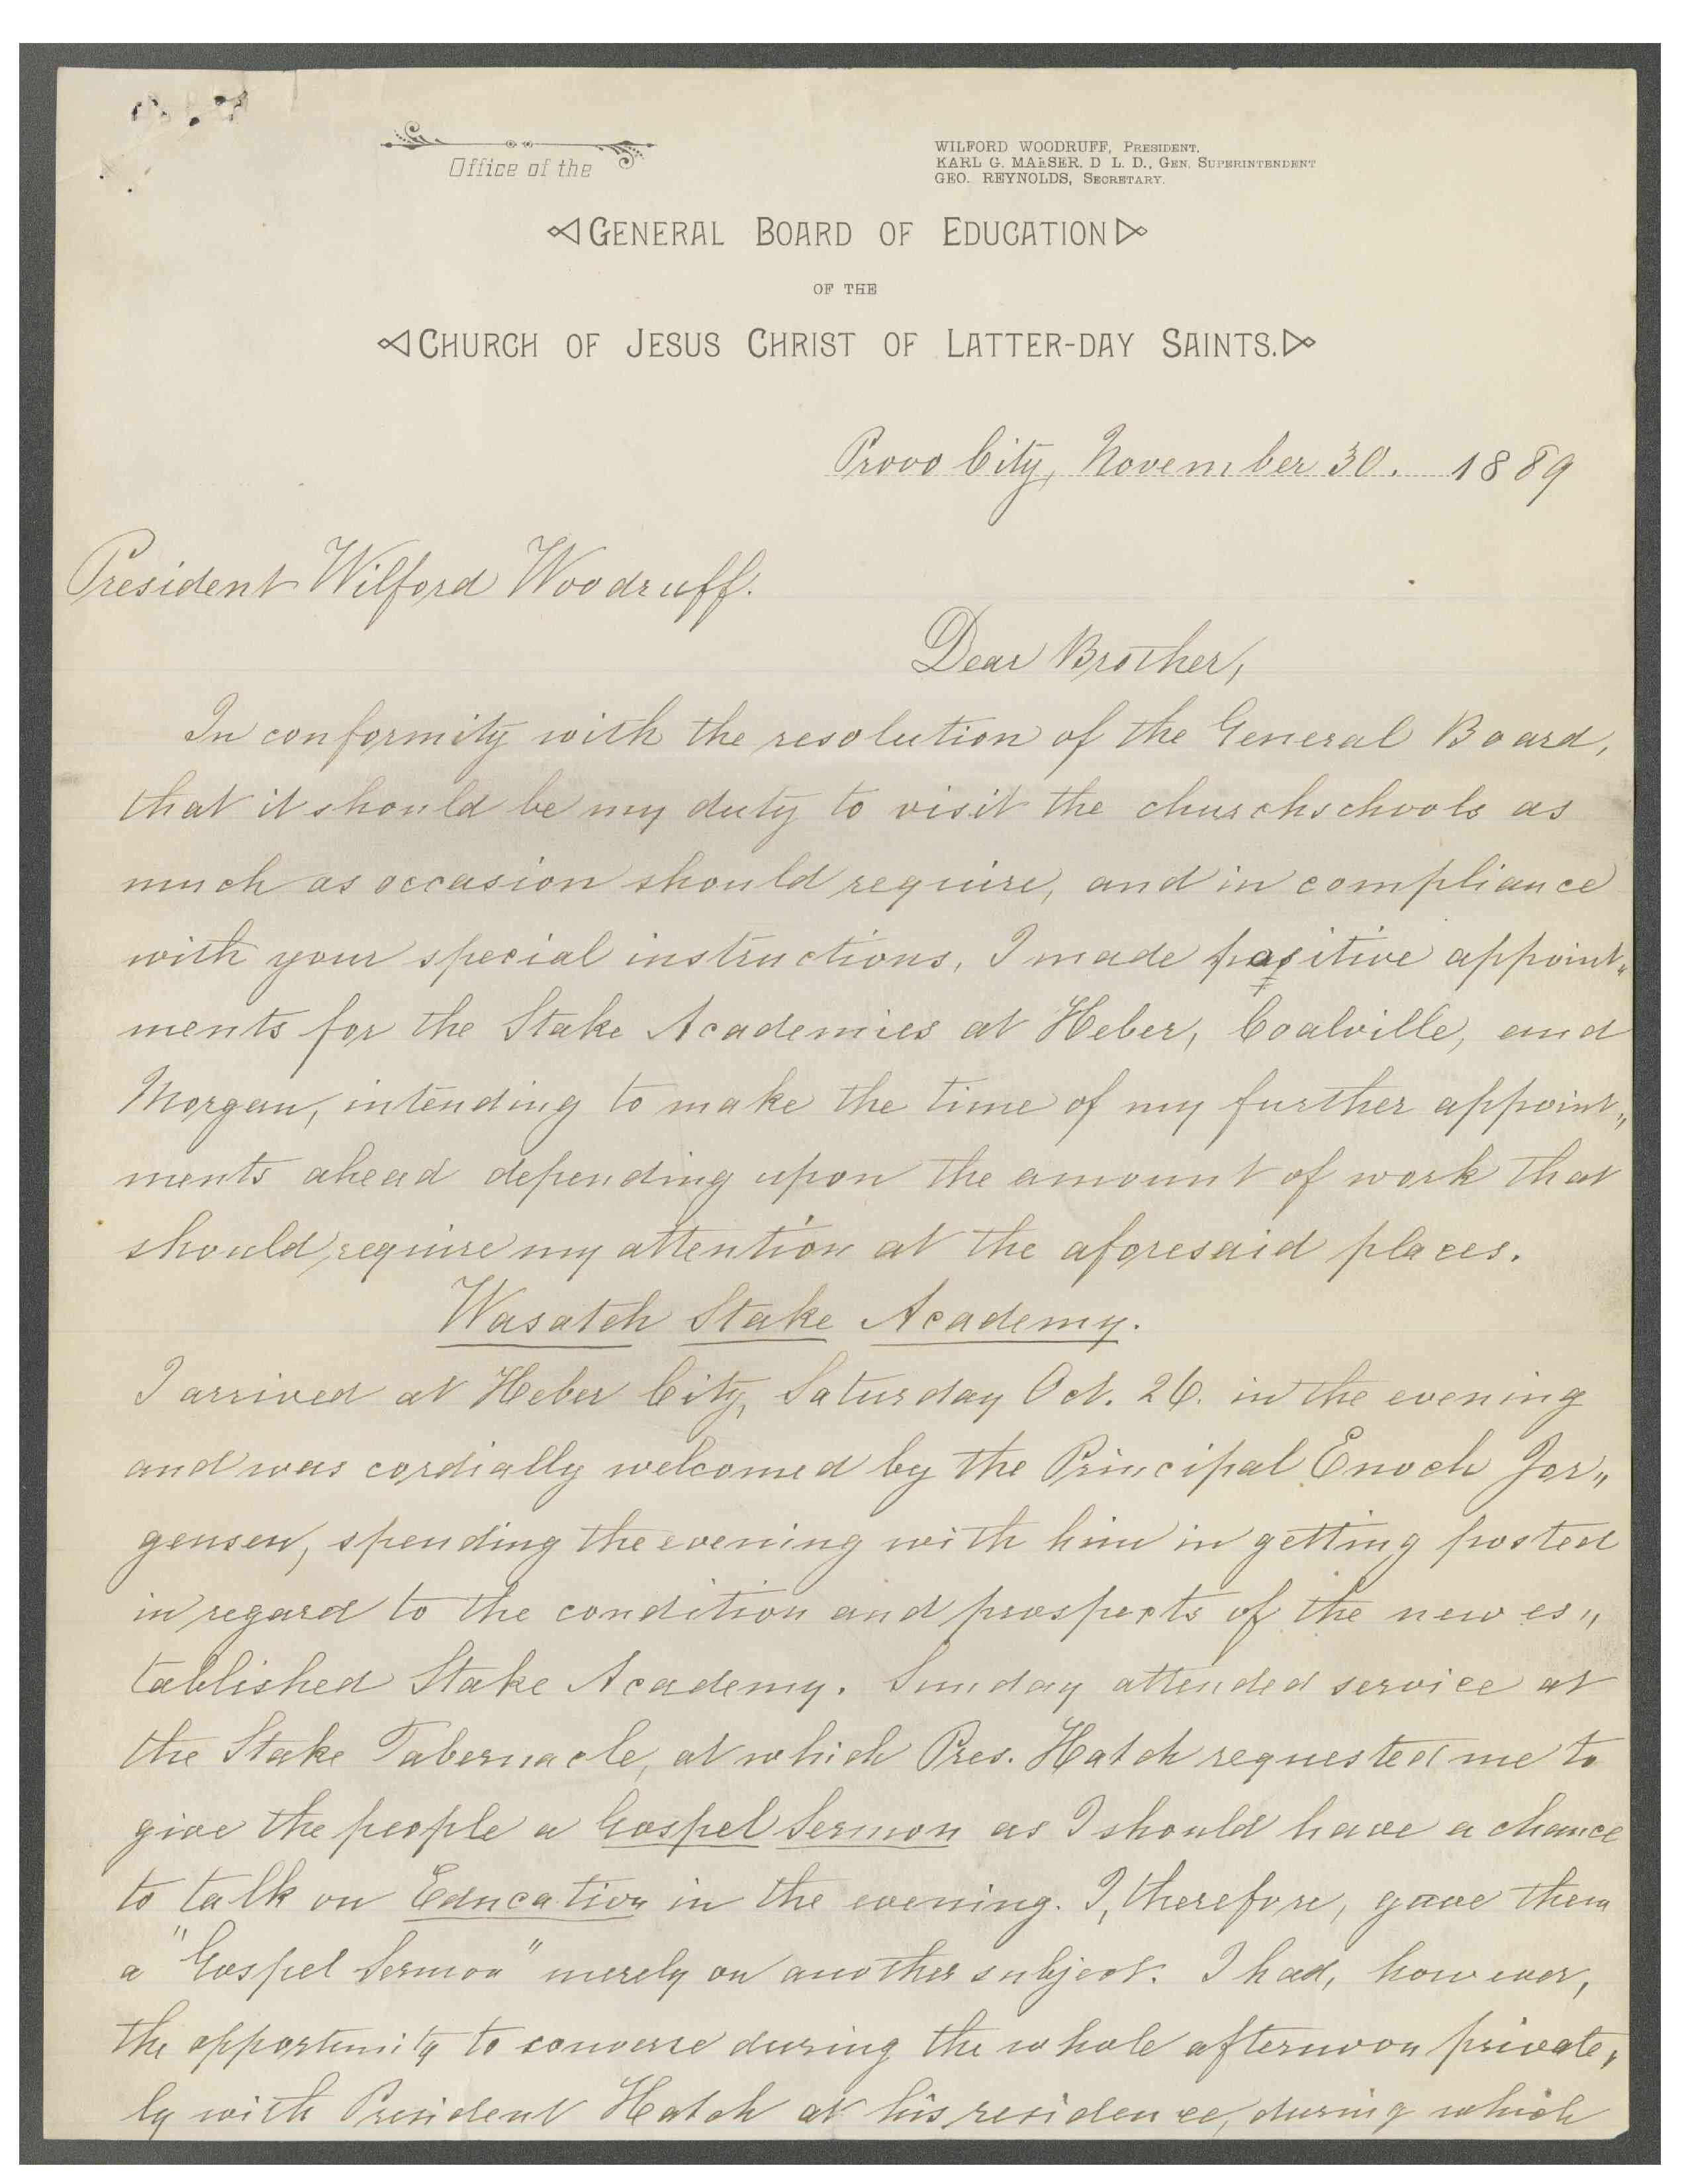 Office of the
WILFORD WOODRUFF, PRESIDENT.
KARL G. MAESER. D L. D., GEN. SUPERINTENDENT
GEO. REYNOLDS, SECRETARY.
GENERAL BOARD OF EDUCATION
OF THE
CHURCH OF JESUS CHRIST OF LATTER-DAY SAINTS.
Provo City, November 30. 1889
President Wilford Woodruff.
Dear Brother,
In conformity with the resolution of the General Board,
that it should be my duty to visit the churchschools as
much as occasion should require, and in compliance
with your special instructions, I made positive appoint„
ments for the Stake Academies at Heber, Coalville, and
Morgan, intending to make the time of my further appoint„
ments ahead depending upon the amount of work that
should require my attention at the aforesaid places.
Wasatch Stake Academy.
I arrived at Heber City, Saturday Oct. 26. in the evening
and was cordially welcomed by the Principal Enoch Jor„
gensen, spending the evening with him in getting posted
in regard to the condition and prospects of the new es„
tablished Stake Academy. Sunday attended service at
the Stake Tabernacle, at which Pres. Hatch requested me to
give the people a Gospel Sermon as I should have a chance
to talk on Education in the evening. I, therefore, gave them
a "Gospel Sermon" merely on another subject. I had, however,
the opportunity to converse during the whole afternoon private„
ly with President Hatch at his residence, during which